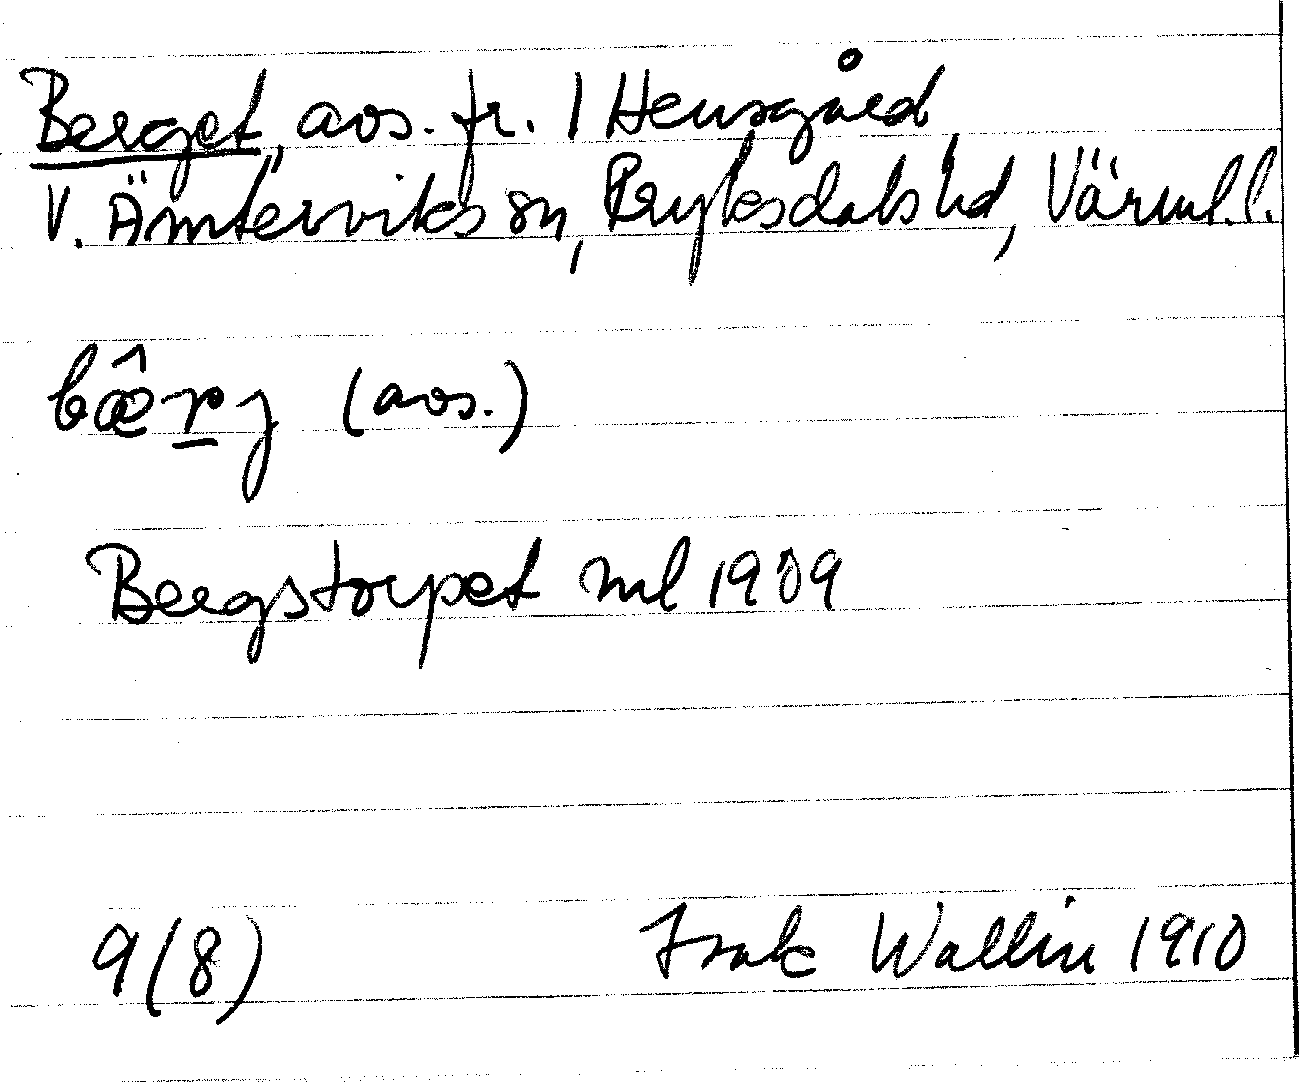 Berget, avs. fr. 1 Hensgård
V. Ämterviks sn, Fryksdals hd, Värml. l.
bæ̂rj (avs.)
Bergstorpet ml 1909
9(8) Isak Wallin 1910